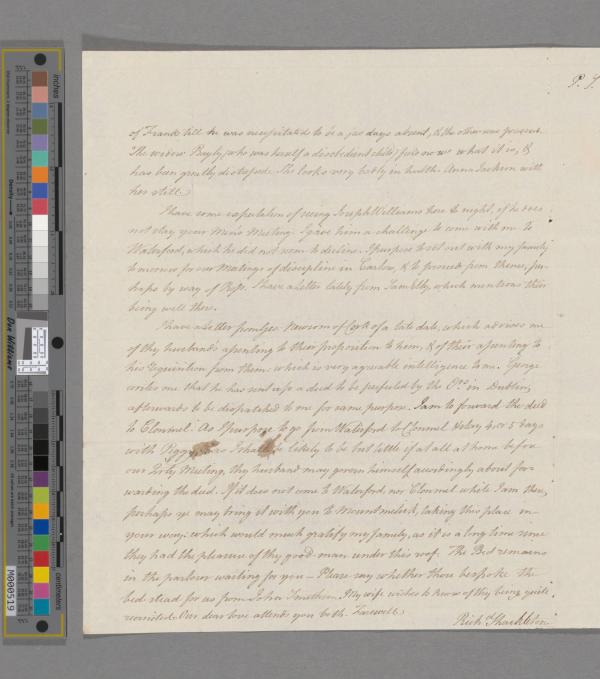 P. S.
of Frank till he was necessitated to be a few days absent, & the other was present.
The widow Bayly, (who was herself a disobedient child) feels now what it is, &
has been greatly distressed. She looks very badly in health. Anna Jackson with
her still.
I have some expectation of seeing Joseph Williams here to night, if he does
not stay your Men's Meeting. I gave him a challenge to come with me to
Waterford, which he did not seem to decline. I purpose to set out with my family
to morrow for our Meetings of discipline in Carlow, & to proceed from thence, per-
haps by way of Ross. I have a letter lately from which mentions their
being well there.
I have a letter from Geo. Newsom of Cork of a late date, which advises me
of thy husband's assenting to their proposition to him, & of their assenting to
his requisition from them: which is very agreeable intelligence to me. George
writes me that he has sent up a deed to be perfected by the in Dublin,
afterwards to be dispatched to me for same purpose. I am to forward the deed
to Clonmel. As I purpose to go from Waterford to Clonmel & stay 4 or 5 days
with Peggy, & as I shall be likely to be but little if at all at home before
our Meeting, thy husband may govern himself accordingly about for-
warding the deed. If it does not come to Waterford nor Clonmel while I am there,
perhaps ye may bring it with you to Mountmelick, taking this place in
your way: which would much gratify my family, as it is a long time since
they had the pleasure of thy good man under this roof. The Bed remains
in the parlour waiting for you — Please say whether thou bespoke the
bed stead for us from John My wife wishes to know of thy being quite
recruited. Our dear love attends you both. Farewell.
Rich.d Shackleton
inches
centimetres
Don Williams
M000519